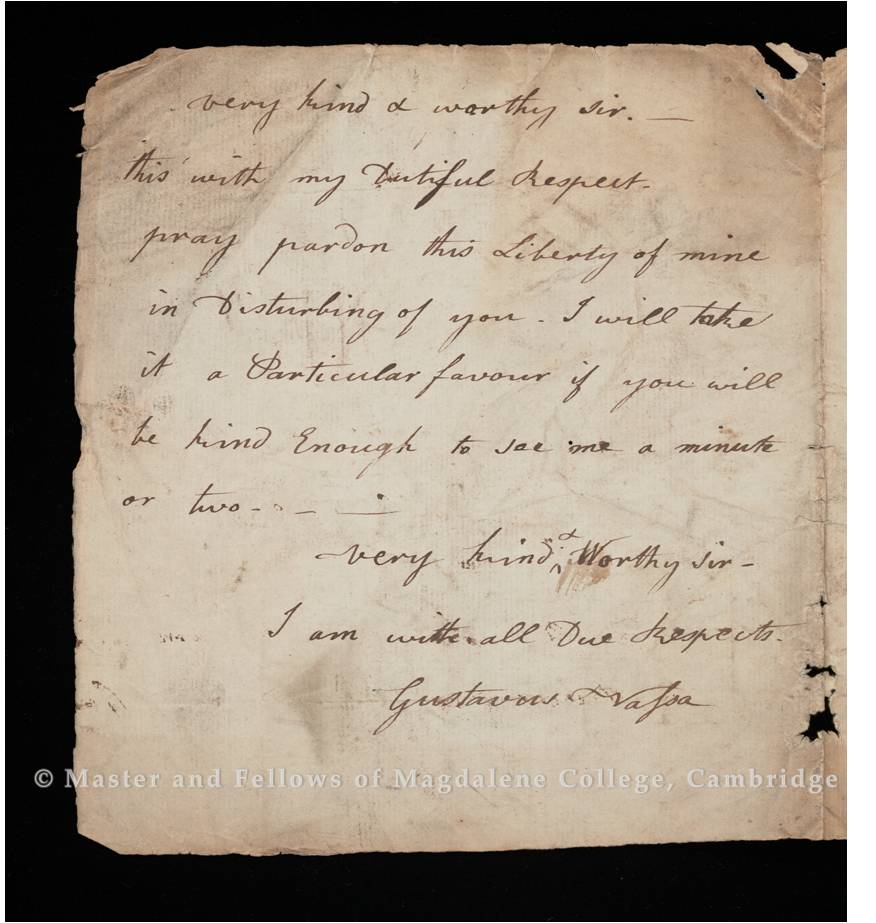 very kind & worthy sir. —
this with my Dutiful Respect.
pray pardon this Liberty of mine
in Disturbing of you - I will take
it a Particular favour if you will
be kind Enough to see me a minute -
or two - - —
very kind & Worthy sir -
I am with all Due Respects.
Gustavus Vaſsa
© Master and Fellows of Magdalene College, Cambridge